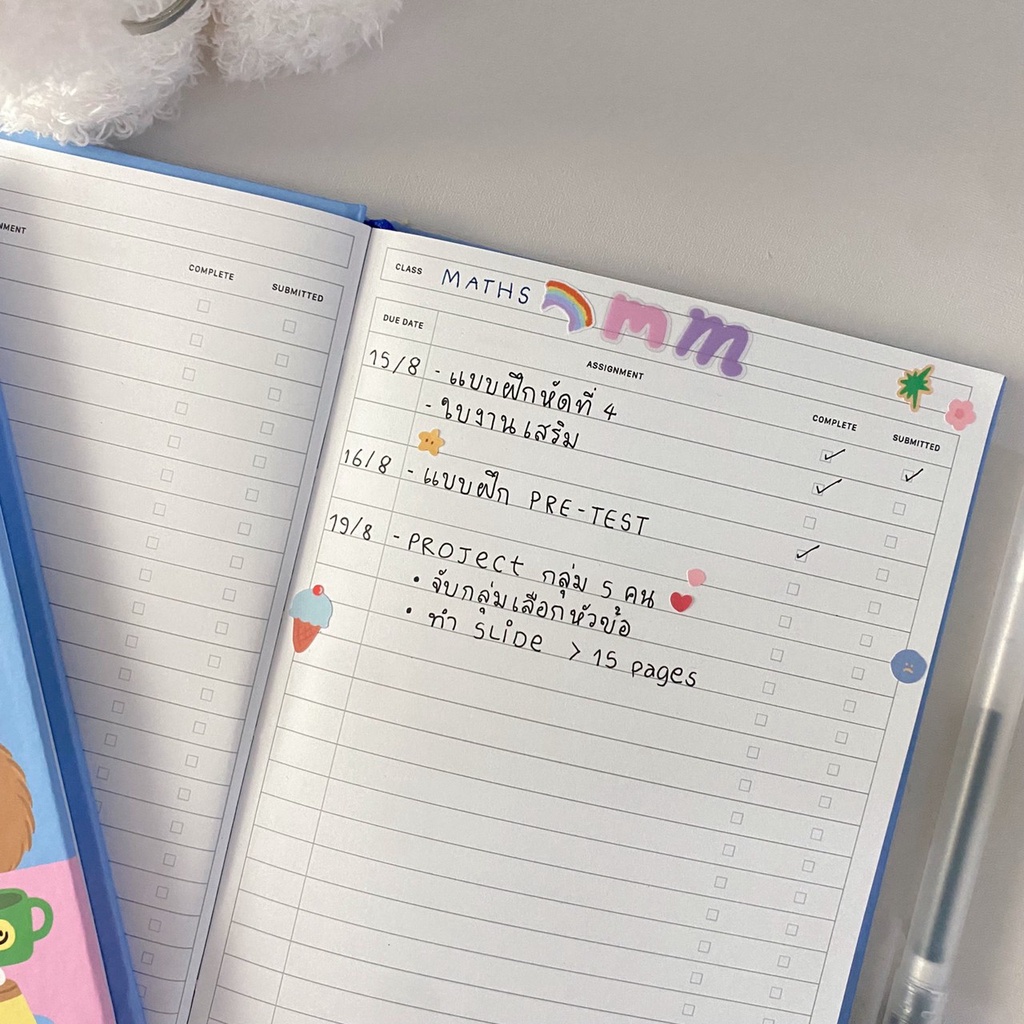 NMENT
COMPLETE
SUBMITTED
CLASS MATHS
m m
DUE DATE
ASSIGNMENT
COMPLETE
SUBMITTED
15/8 - แบบฝึกหัดที่ 4
- ใบงานเสริม
16/8 - แบบฝึก PRE-TEST
19/8 - PROJECT กลุ่ม 5 คน
• จับกลุ่มเลือกหัวข้อ
• ทำ SLIDE > 15 pages